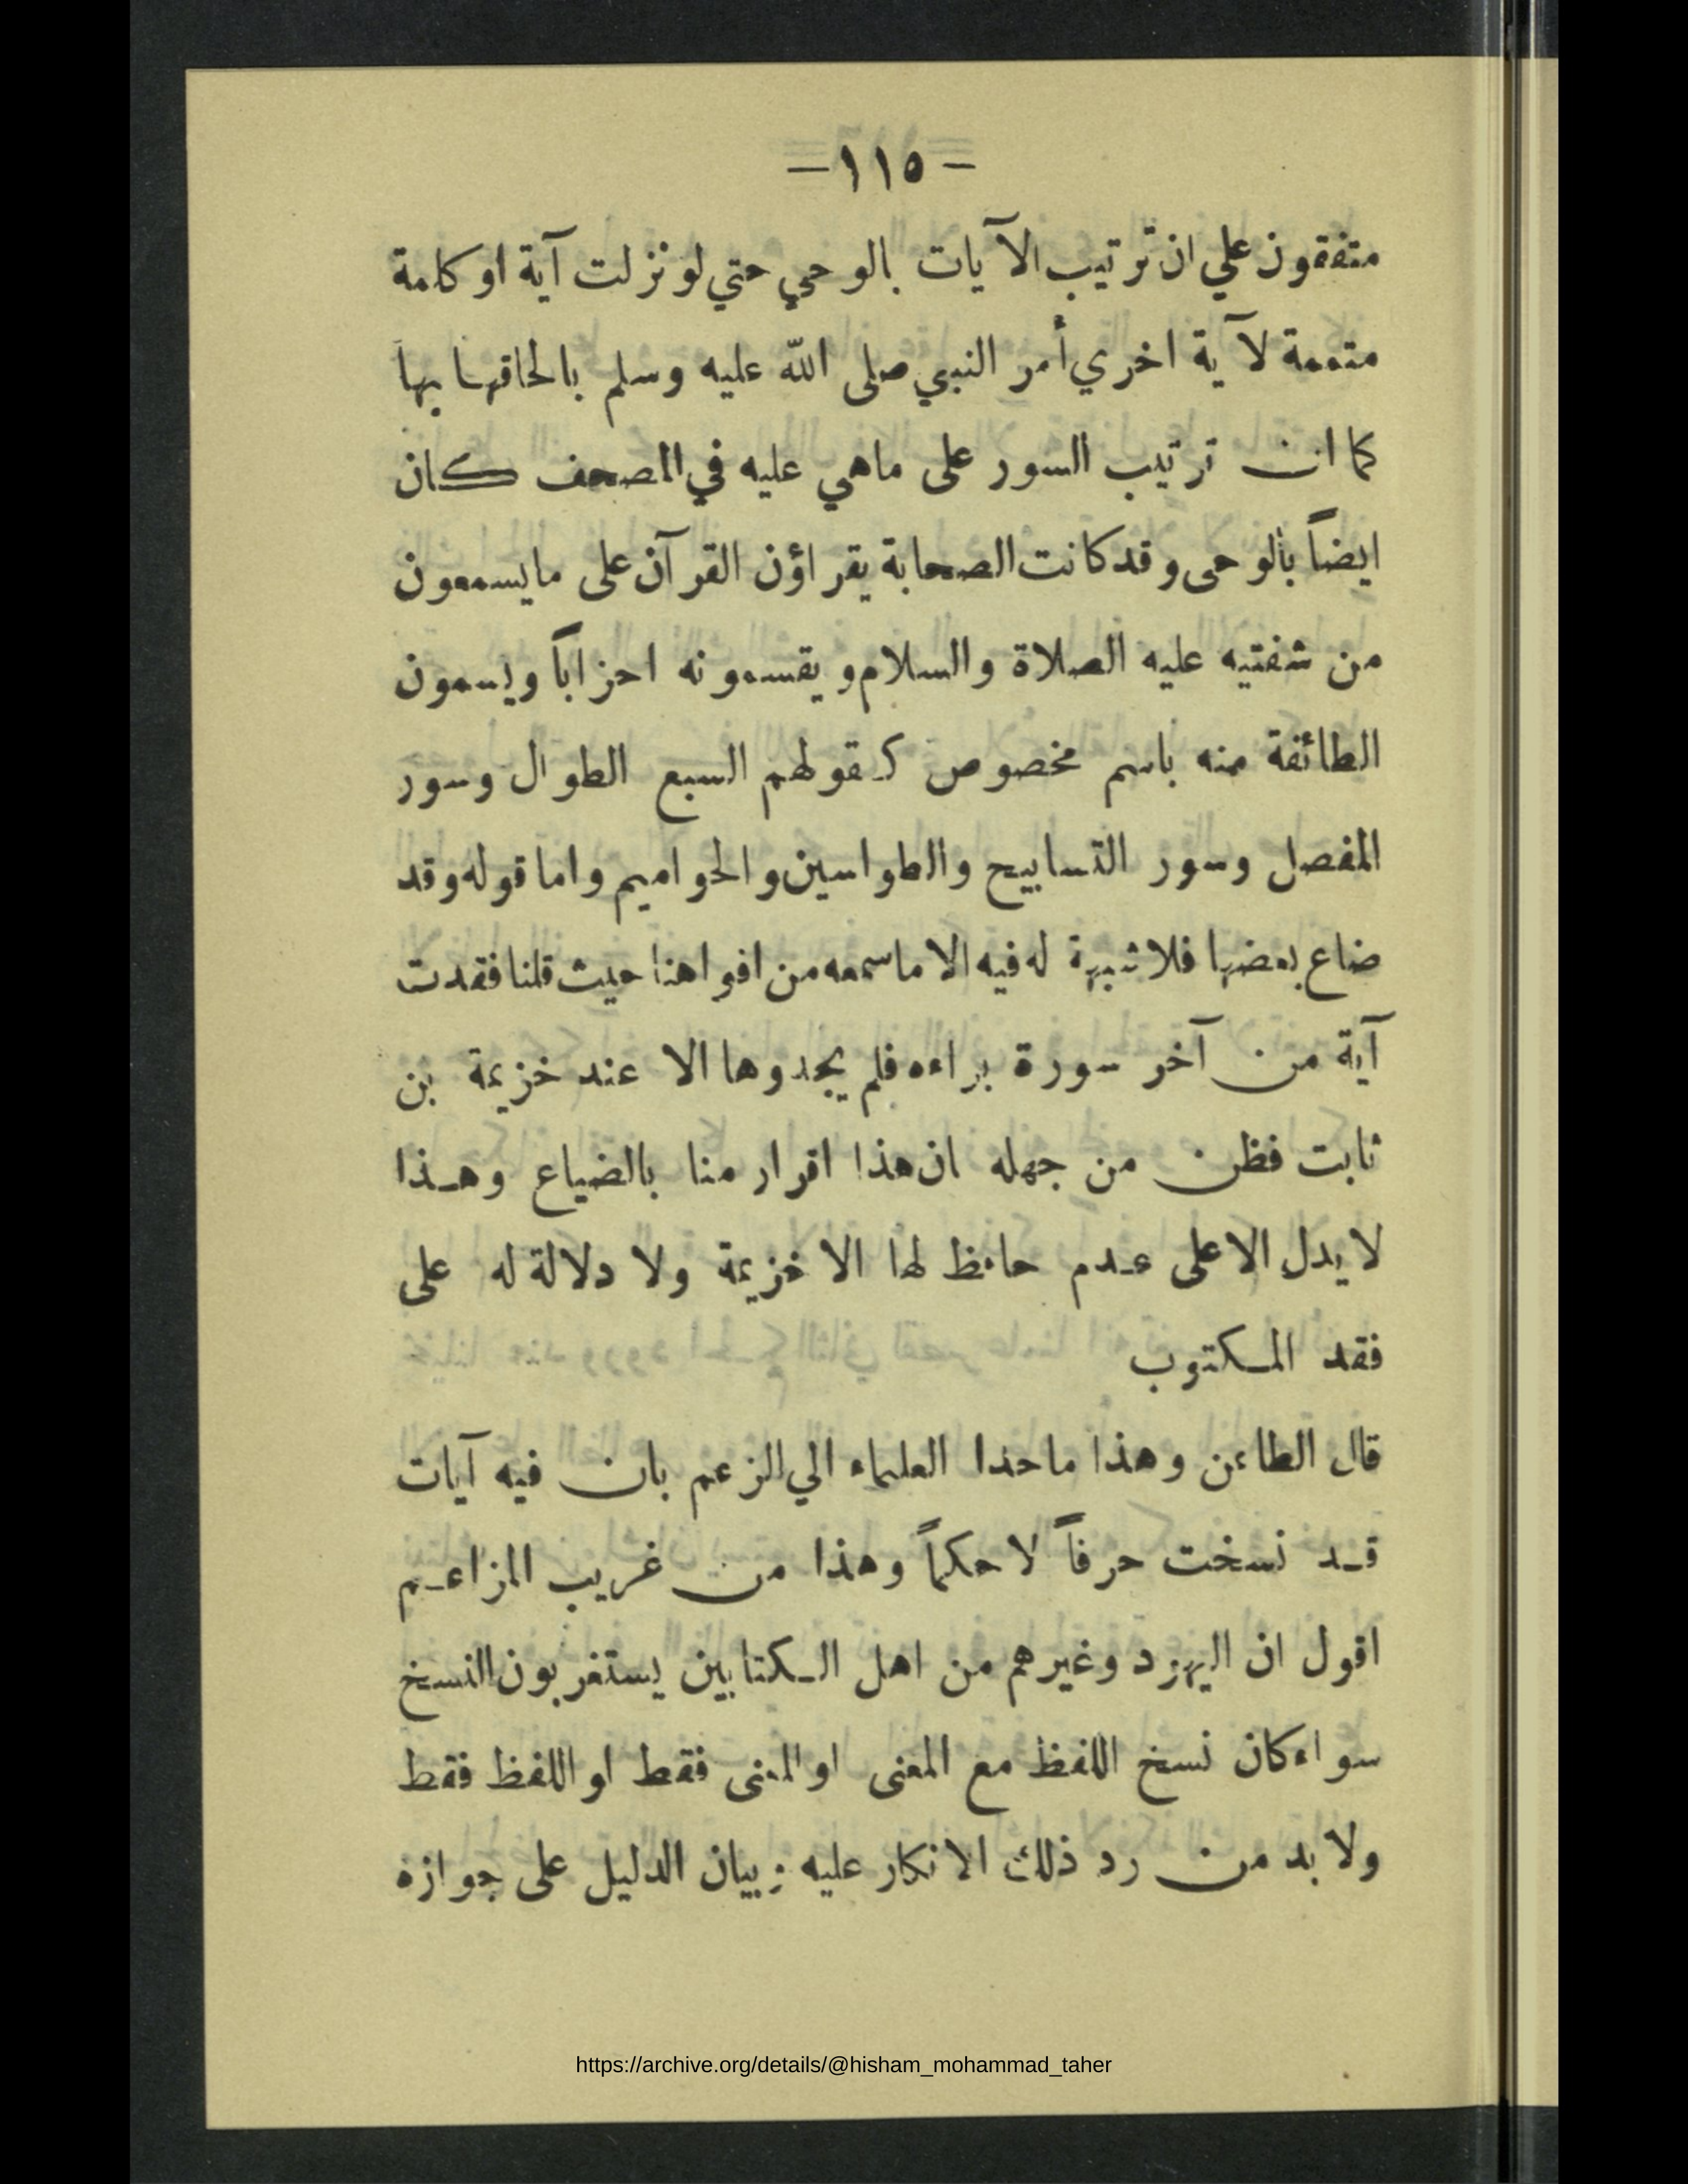 — ١١٥ —
متفقون علي ان ترتيب الآيات بالوحي حتي لو نزلت آية او كلمة
متممة لآية اخري أمر النبي صلى الله عليه وسلم بالحاقها بها
كما ان ترتيب السور على ماهي عليه في المصحف كان
ايضاً بالوحى وقد كانت الصحابة يقراؤن القرآن على مايسمعون
من شفتيه عليه الصلاة والسلام ويقسمونه احزاباً ويسمون
الطائفة منه باسم مخصوص كقولهم السبع الطوال وسور
المفصل وسور التسابيح والطواسين والحواميم واما قوله وقد
ضاع بعضها فلا شبهة له فيه الا ماسمعه من افواهنا حيث قلنا فقدت
آية من آخر سورة براءه فلم يجدوها الا عند خزيمة بن
ثابت فظن من جهله ان هذا اقرار منا بالضياع وهذا
لا يدل الا على عدم حافظ لها الا خزيمة ولا دلالة له على
فقد المكتوب
قال الطاعن وهذا ماحذا العلماء الي الزعم بان فيه آيات
قد نسخت حرفاً لا حكماً وهذا من غريب المزاعم
اقول ان اليهود وغيرهم من اهل الكتابين يستغربون النسخ
سواء كان نسخ اللفظ مع المعنى او المعنى فقط او اللفظ فقط
ولا بد من رد ذلك الانكار عليه وبيان الدليل على جوازه
https://archive.org/details/@hisham_mohammad_taher